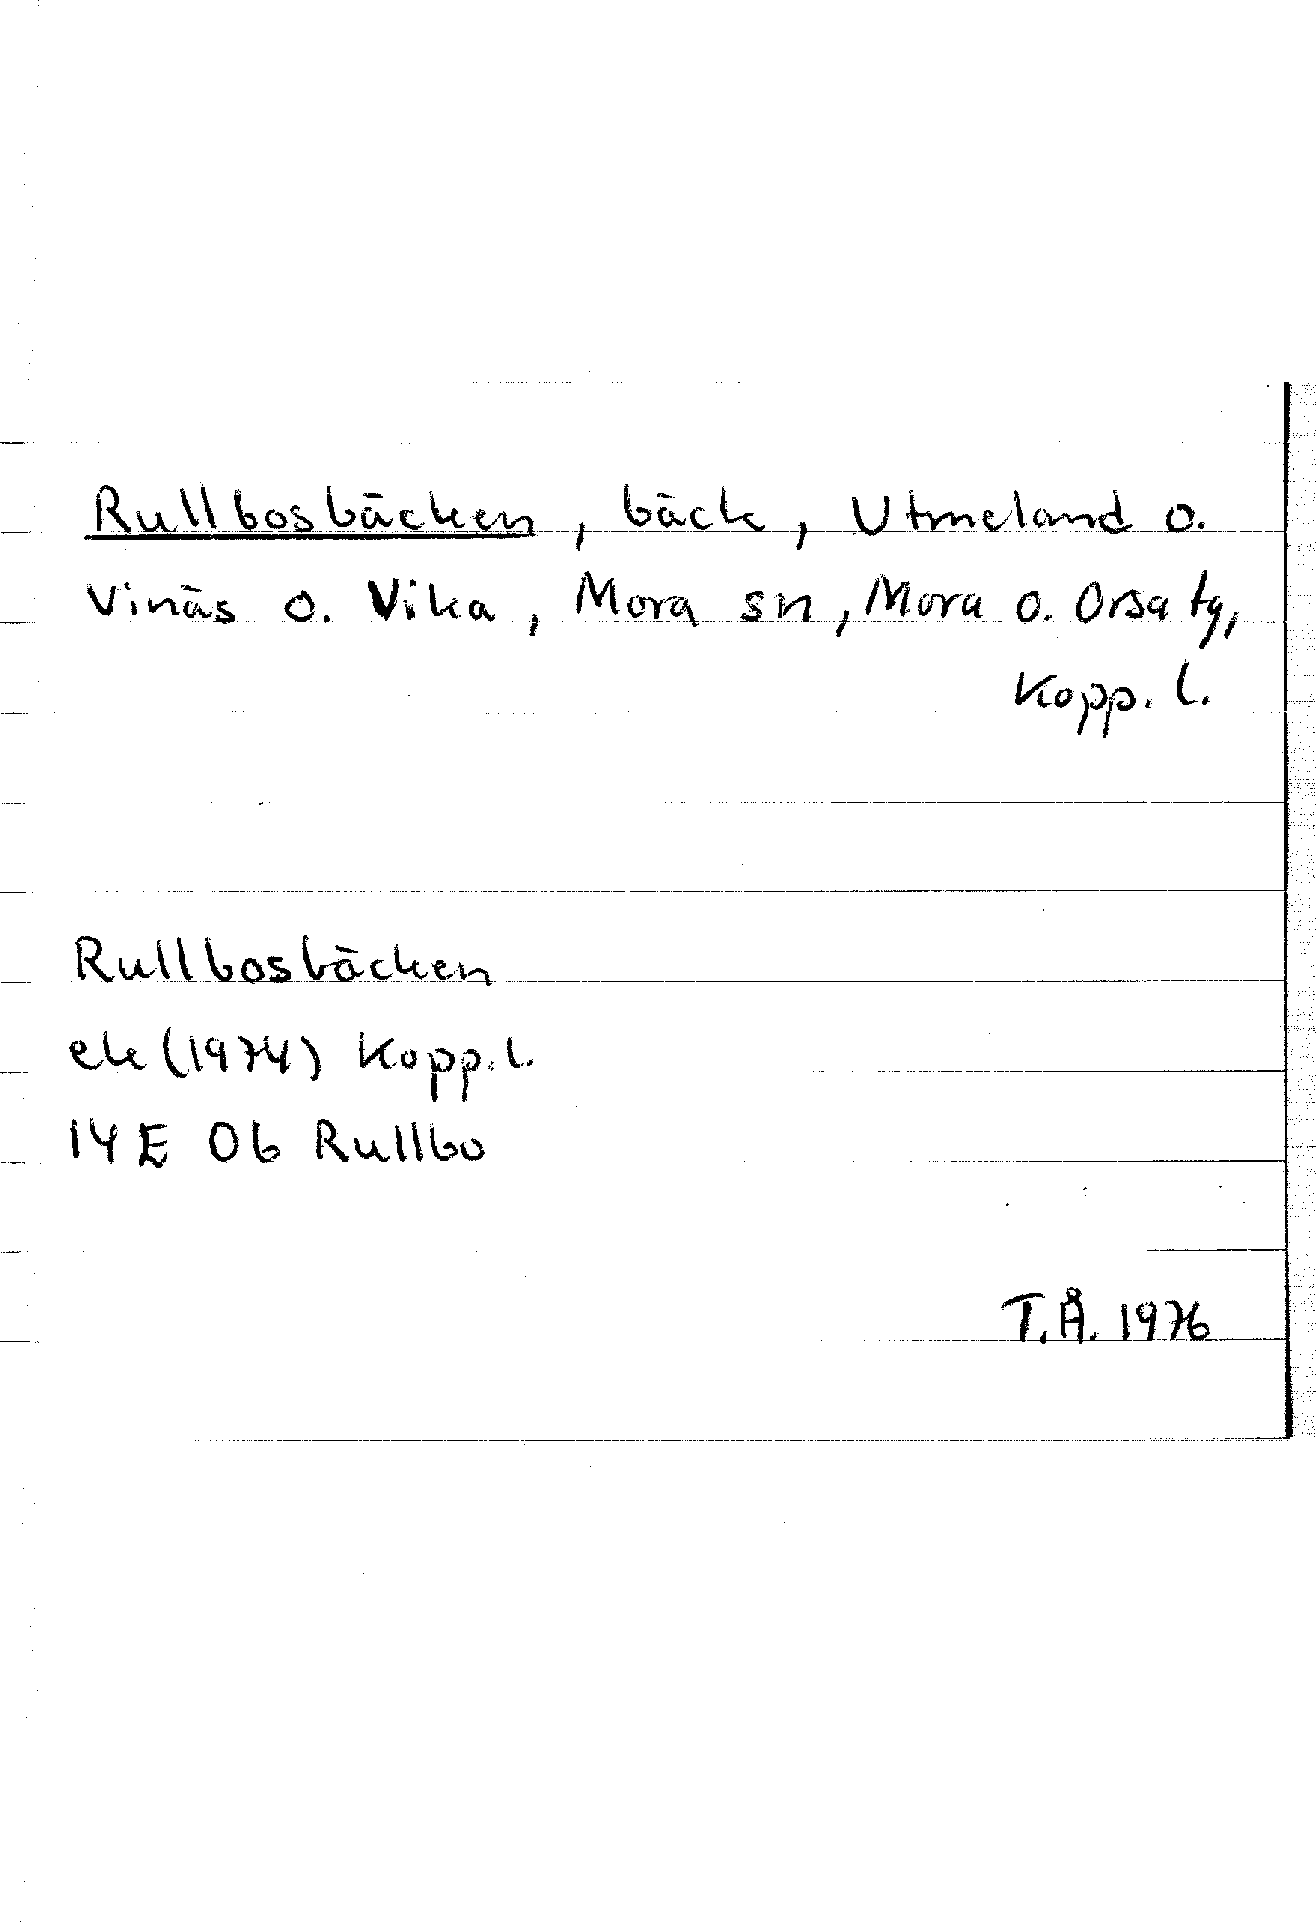 Rullbosbäcken, bäck, Utmeland o.
Vinäs o. Vika, Mora sn, Mora o. Orsa tg,
Kopp. l.
Rullbosbäcken
ek (1974) Kopp. l.
14 E 0b Rullbo
T.Å. 1976